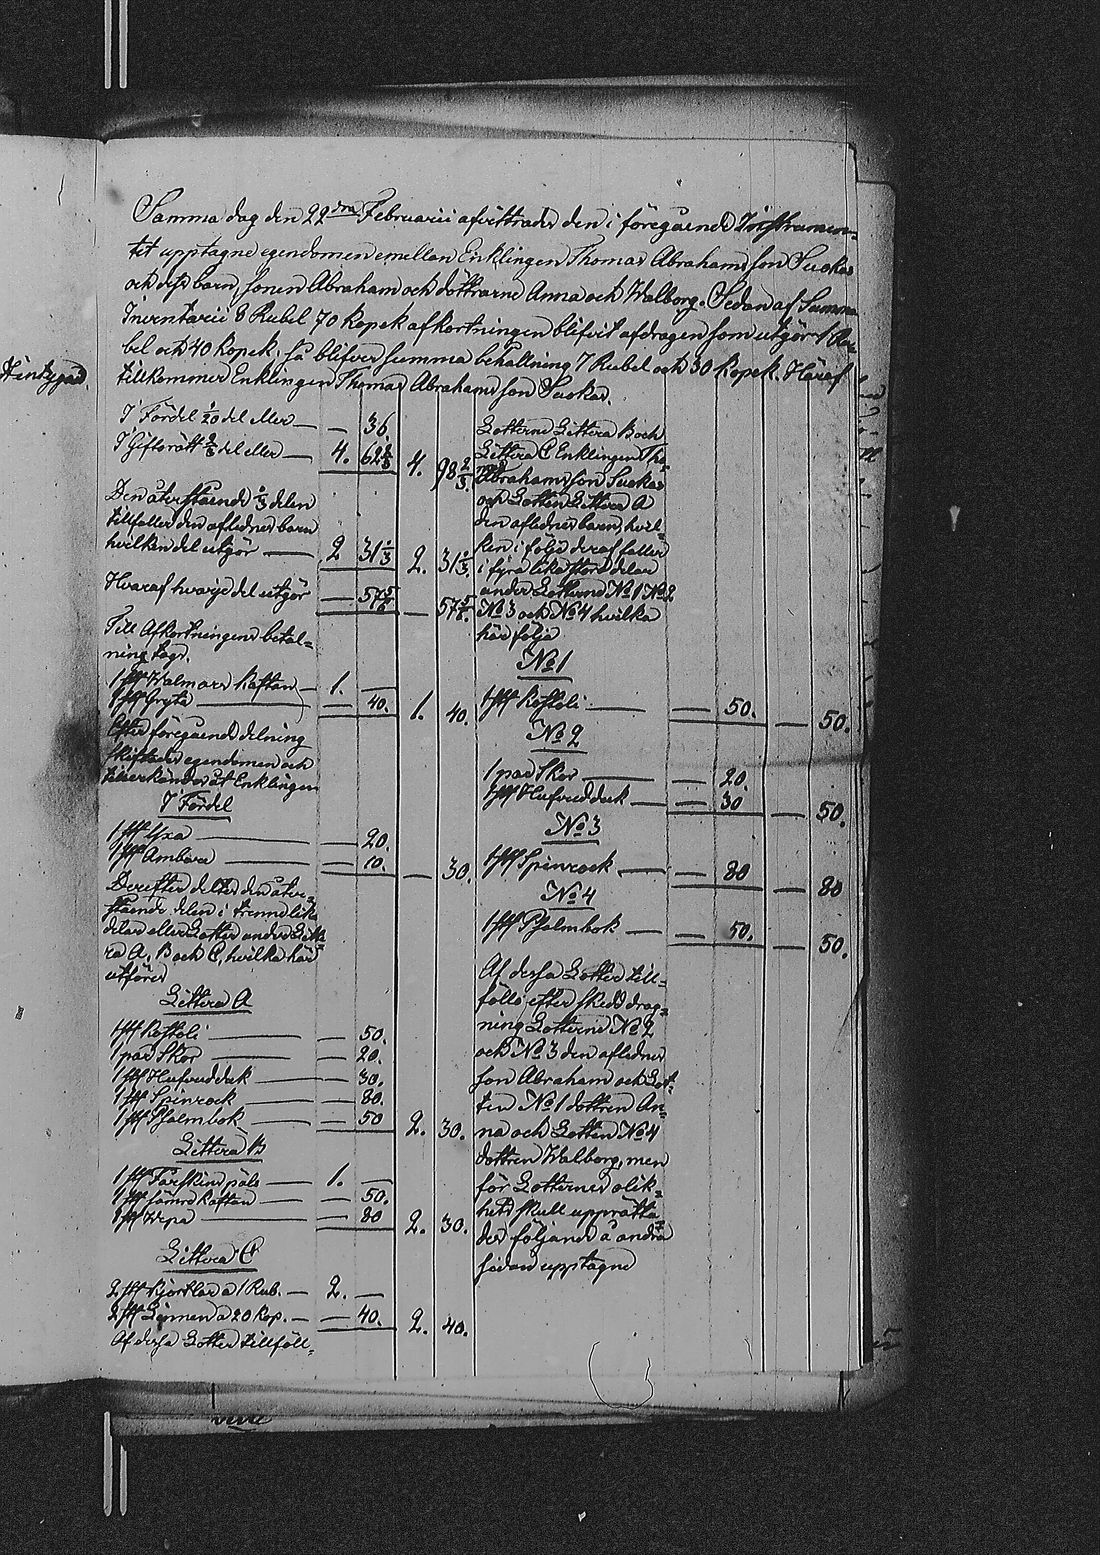 Samma dag den 22dra Februarii afvittrades den i föregående Instrumen-
tet upptagne egendomen emellan Enklingen Thomas Abrahamsson Suokas
och dess barn, sonen Abraham och döttrarne Anna och Walborg. Sedan af Summa
Inventarii 8 Rubel 70 kopek afkortningen blifvit afdragen som utgör 1 Ru-
bel och 40 kopek, så blifver Summa behållning 7 Rubel och 30 kopek. Häraf
tillkommer Enklingen Thomas Abrahamsson Suokas.
I Fördel 1/20 del eller — — 36.
I Giftorätt 2/3 del eller — 4. 62 2/3 4. 98 2/3.
Den återstående 1/3 delen
tillfaller den aflednes barn
hvilken del utgör — 2 31 1/3 2. 31 1/3.
Hvaraf hvarje del utgör — 57 5/6 — 57 5/6.
Till Afkortningens betal=
ning togs.
1 st Walmars kaftan — 1. —
1 st Gryta — — 40. 1. 40.
Efter föregående delning
skiftades egendomen och
tillerkändes åt Enklingen
I Fördel
1 st Yxa — — 20.
1 st Ambare — — 10. — 30.
Derefter deltes den åter=
stående delen i trenne lika
delar eller Lotter under Litte
ra A, B och C, hvilka här
utföres
Littera A
1 st Kostoli — — 50.
1 par Skor — — 20.
1 st Hufvudduk — — 30.
1 st Spinrock — — 80.
1 st Psalmbok — — 50 2. 30.
Littera B
1 st Fårskins päls — 1. —
1 st sämre kaftan — — 50.
1 st Wepa — — 80 2. 30.
Littera C
2 st Kjortlar a 1 Rub. — 2. —
2 st Linnen a 20 kop. — — 40. 2. 40.
Af dessa Lotter tillföll=
Lotterne Littera B och
Littera C Enklingen Tho=
mas Abrahamsson Suokas
och Lotten Littera A
den aflednes barn, hvil=
ken i följe deraf faller
i fyra lika stora delar
under Lotterne No 1 No 2
No 3 och No 4 hvilka
här följa
No 1
1 st Kostoli — — 50. — 50.
No 2
1 par Skor — — 20.
1 st Hufvudduk — — 30 — 50.
No 3
1 st Spinrock — — 80 — 80
No 4
1 st Psalmbok — — 50. — 50.
Af dessa Lotter till=
föllo efter skedd drag=
ning Lotterne No 2
och No 3 den aflednes
son Abraham och Lot=
ten No 1 dottren An=
na och Lotten No 4
dottren Walborg, men
för Lotternes olik=
hets skull upprätta
des följande å andra
sidan upptagne